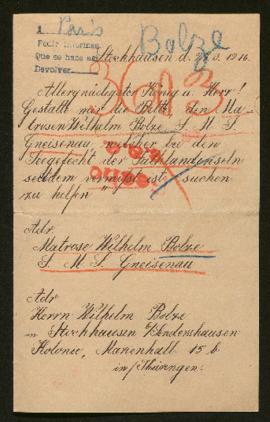 a Paris
Bolze
Pedir informes
Que se hace saber
Devolver
Stockhausen d. 28.3. 1916.
3603
Allergnädigster König u. Herr!
Gestatte mir die Bitte, den Ma-
trosen Wilhelm Bolze S. M. S.
Gneisenau, welcher bei den
Seegefecht der Falklandinseln
seitdem vermißt ist, suchen
zu helfen
Adr.
Matrose Wilhelm Bolze
S. M. S. Gneisenau
Adr
Herrn Wilhelm Bolze
in Stockhausen b/Sondershausen
Kolonie, Marienhall 15 b.
in/Thüringen.